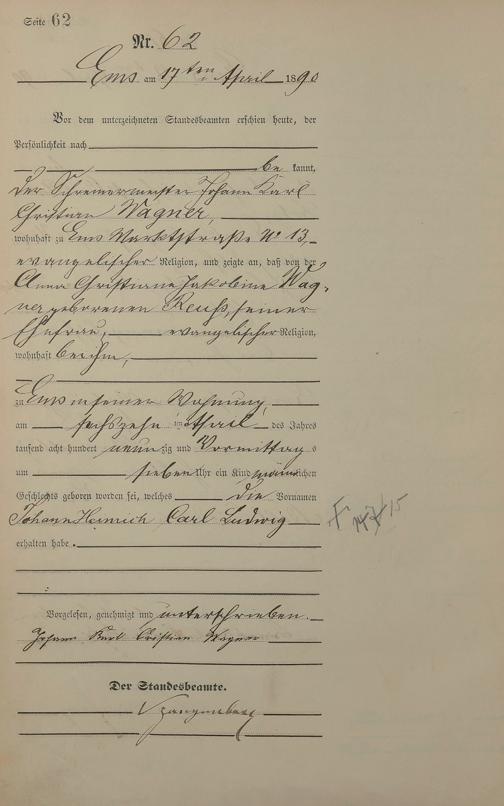 Seite 62
Nr. 62
Ems am 17ten April 1890
Vor dem unterzeichneten Standesbeamten erschien heute, der
Persönlichkeit nach
be kannt,
der Schreinermeister Johann Karl
Christian Wagner,
wohnhaft zu Ems Marktstraße No 13,
evangelischer Religion, und zeigte an, daß von der
Anna Christiane Jakobine Wag-
ner geborenen Reuß, seiner
Ehefrau, evangelischer Religion,
wohnhaft bei ihm,
zu Ems in seiner Wohnung,
am sechszehn ten April des Jahres
tausend acht hundert neun zig und Vormittags
um sieben Uhr ein Kind männlichen
Geschlechts geboren worden sei, welches die Vornamen
Johann Heinrich Carl Ludwig
erhalten habe.
Vorgelesen, genehmigt und unterschrieben.
Johann Karl Christian Wagner
Der Standesbeamte.
Spangenberg